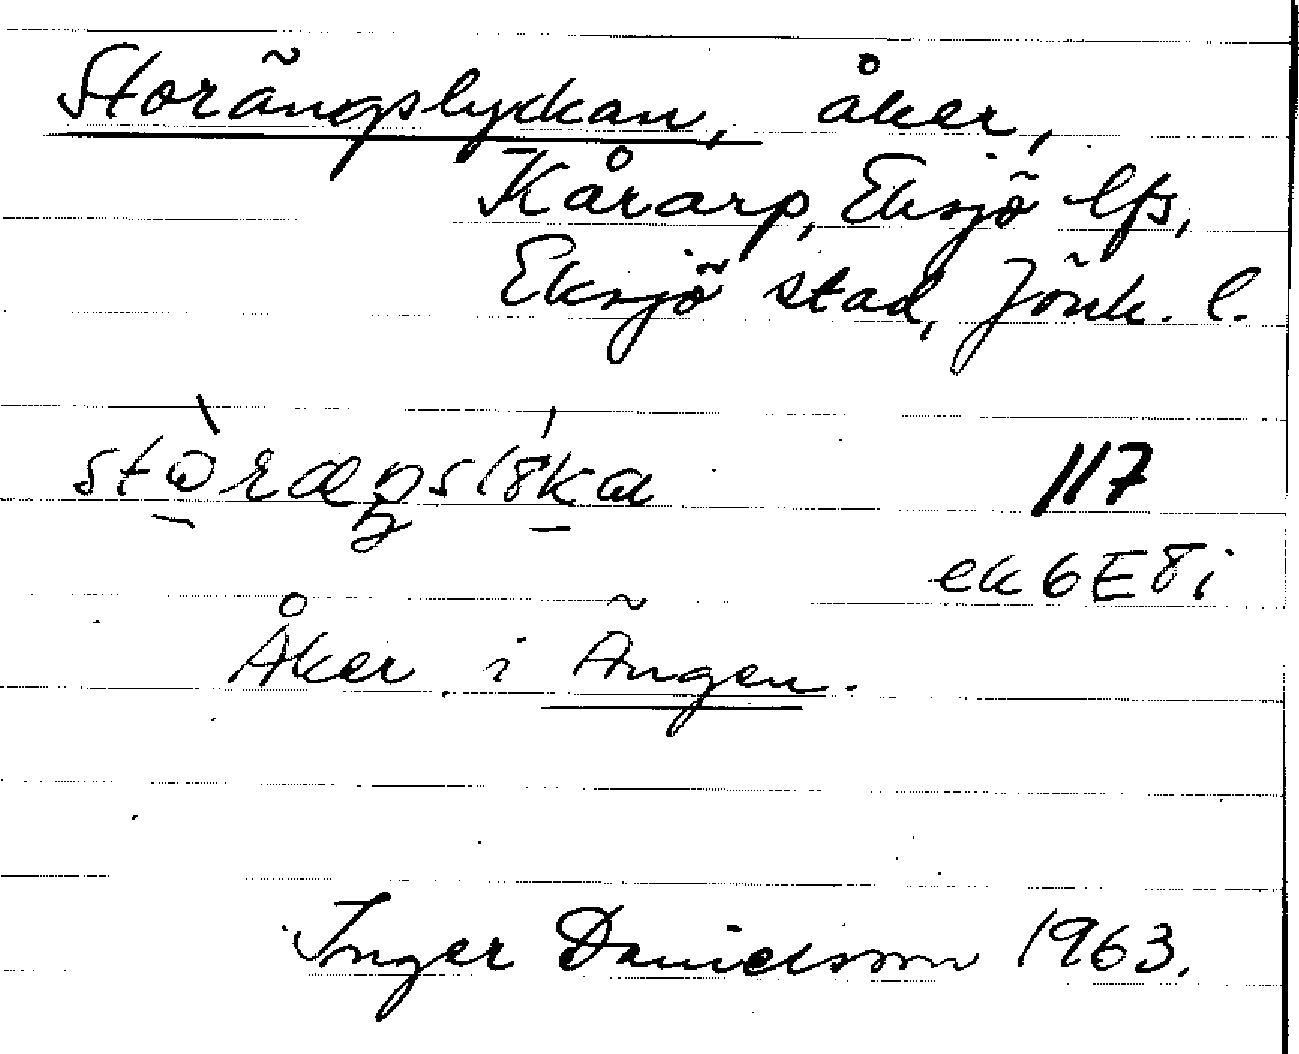 Storängslyckan, åker,
Kårarp, Eksjö lfs,
Eksjö stad, Jönk. l.
117
ek 6E8i
Åker i Ängen.
Inger Danielsson 1963.